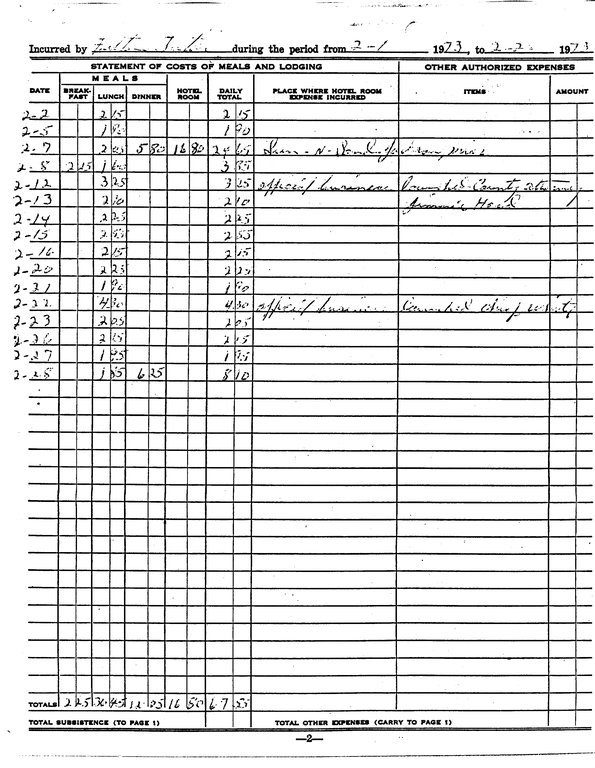 Incurred by during the period from 2-1 1973, to 2-2 1973
STATEMENT OF COSTS OF MEALS AND LODGING OTHER AUTHORIZED EXPENSES
MEALS
DATE BREAK-FAST LUNCH DINNER HOTEL ROOM DAILY TOTAL PLACE WHERE HOTEL ROOM EXPENSE INCURRED ITEMS AMOUNT
2-2 2 15 2 15
2-5 1 90 1 90
2-7 5 80 16 80
2-8 2 25 1 60 3 85
2-12 3 25 3 25 official business County
2-13 2 10 2 10 Jimmie
2-14 2 25 2 25
2-15 2 55 2 55
2-16 2 15 2 15
2-20 2 25 2 25
2-21 1 90 1 90
2-22 4 30 4 30 official business Chief
2-23 2 05 2 05
2-26 2 15 2 15
2-27 1 95 1 95
2-28 1 85 6 25 8 10
TOTALS 2 25 36 45 12 05 16 80 67 55
TOTAL SUBSISTENCE (TO PAGE 1) TOTAL OTHER EXPENSES (CARRY TO PAGE 1)
—2—